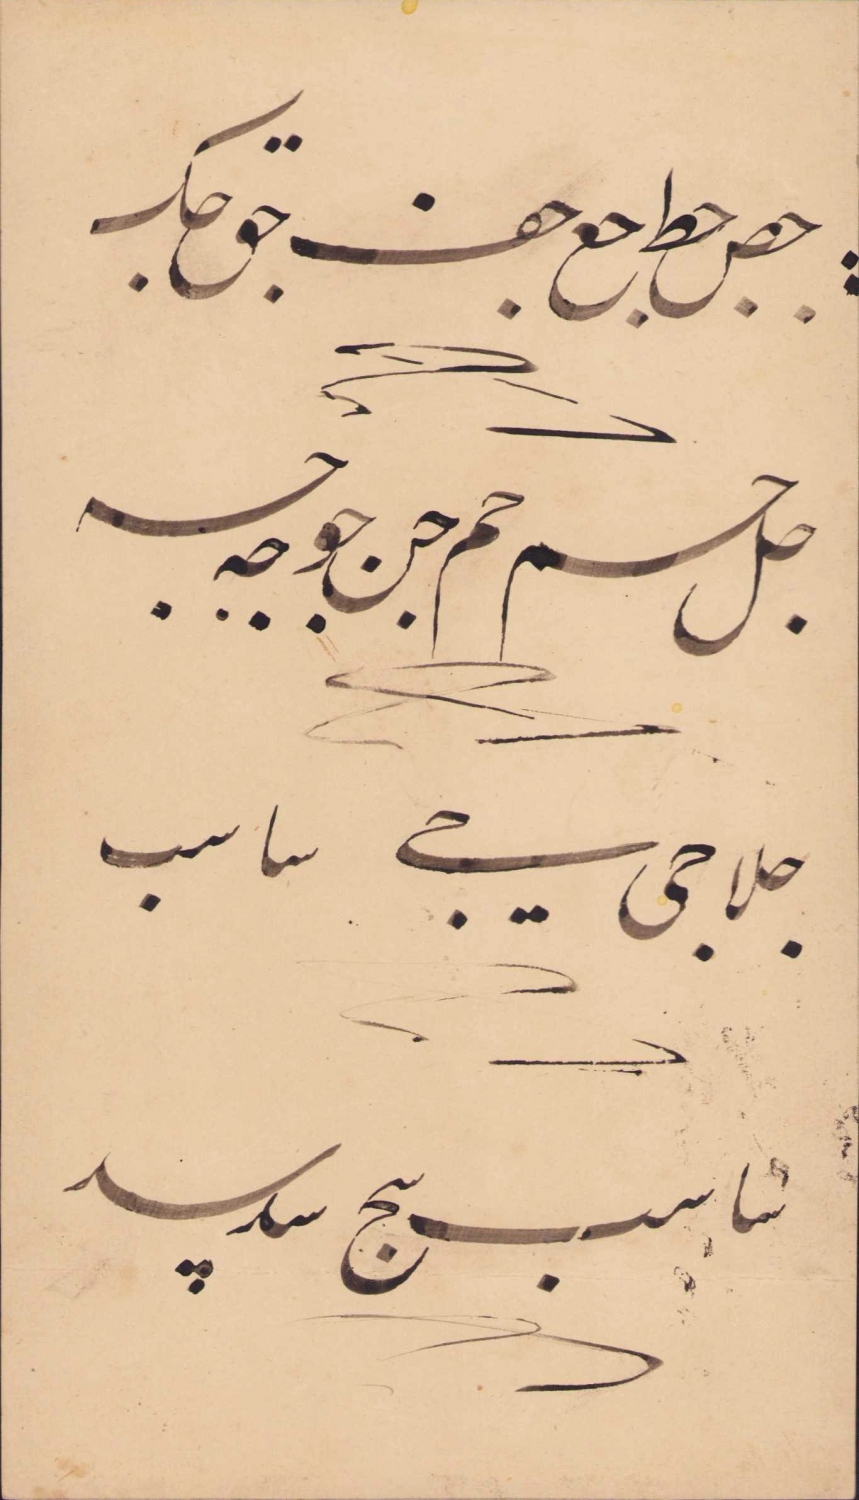 جص جط جع جف جق جک
جل جم جم جن جو جه جه
جلا جی جے سا سب
سا سب سج سد سر